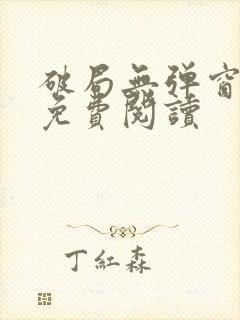 破局無弹窗
免費閱讀
丁紅森